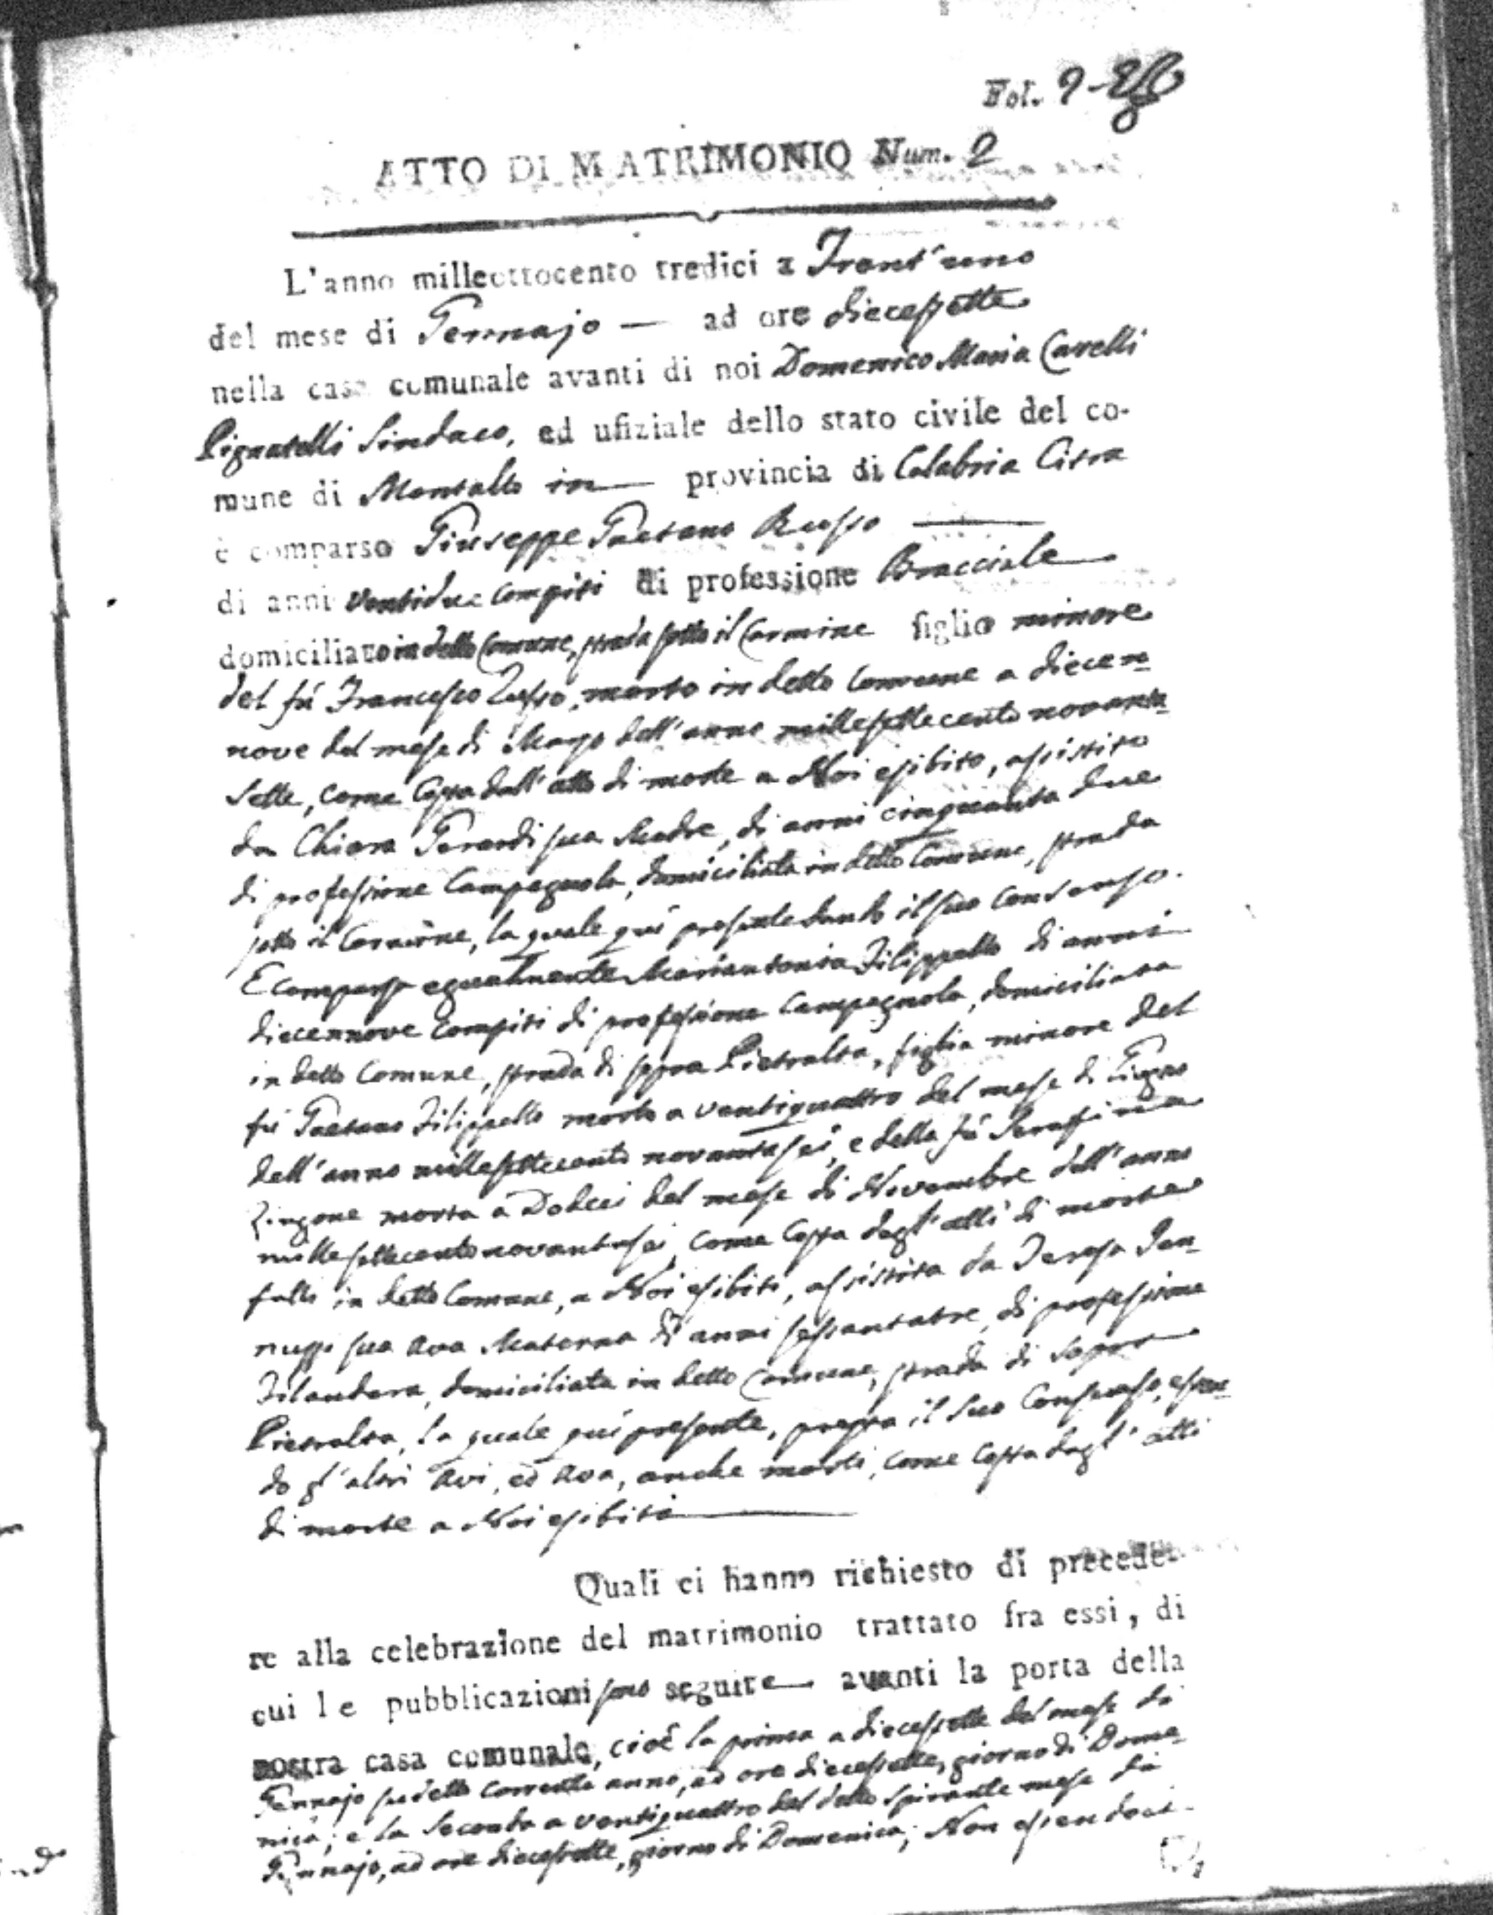 Fol. 2
ATTO DI MATRIMONIO Num. 2
L'anno milleottocento tredici a Trent'uno
del mese di Gennajo — ad ore diecessette
nella casa comunale avanti di noi Domenico Maria Cavelli
Pignatelli Sindaco, ed ufiziale dello stato civile del co-
mune di Montalto in — provincia di Calabria Citra
è comparso Giuseppe Gaetano Russo —
di anni ventidue compiti di professione Bracciale
domiciliato in detto Comune, strada sotto il Carmine figlio minore
del fù Francesco Russo, morto in detto Comune a diecen-
nove del mese di Maggio dell'anno millesettecento novanta
sette, come costa dall'atto di morte a Noi esibito, assistito
da Chiara Gerardi sua Madre, di anni cinquanta due
di professione Campagnola, domiciliata in detto Comune, strada
sotto il Carmine, la quale quì presente dando il suo consenso.
E comparsa egualmente Mariantonia Filippello di anni
diecennove compiti di professione Campagnola, domiciliata
in detto Comune, strada di sopra Pietralta, figlia minore del
fù Gaetano Filippello morto a ventiquattro del mese di Giugno
dell'anno millesettecento novantasei, e della fù Serafina
Zingone morta a Dodeci del mese di Novembre dell'anno
millesettecentonovantasei, come costa dagl'atti di morte
fatti in detto Comune, a Noi esibiti, assistita da Teresa
sua Ava Materna di anni sessantatre, di professione
Filandara, domiciliata in detto Comune, strada di sopra
Pietralta, la quale quì presente, presta il suo Consenso, essen-
do gl'altri Avi, ed Ava, anche morti, come costa dagl'atti
di morte a Noi esibiti —
Quali ci hanno richiesto di procede-
re alla celebrazione del matrimonio trattato fra essi, di
cui le pubblicazioni sono seguite — avanti la porta della
nostra casa comunale, cioè la prima a diecessette del mese di
Gennajo sudetto corrente anno, ad ore diecessette, giorno di Dome-
nica, e la seconda a ventiquattro del detto spirante mese di
Gennajo, ad ore diecessette, giorno di Domenica; Non essendoci